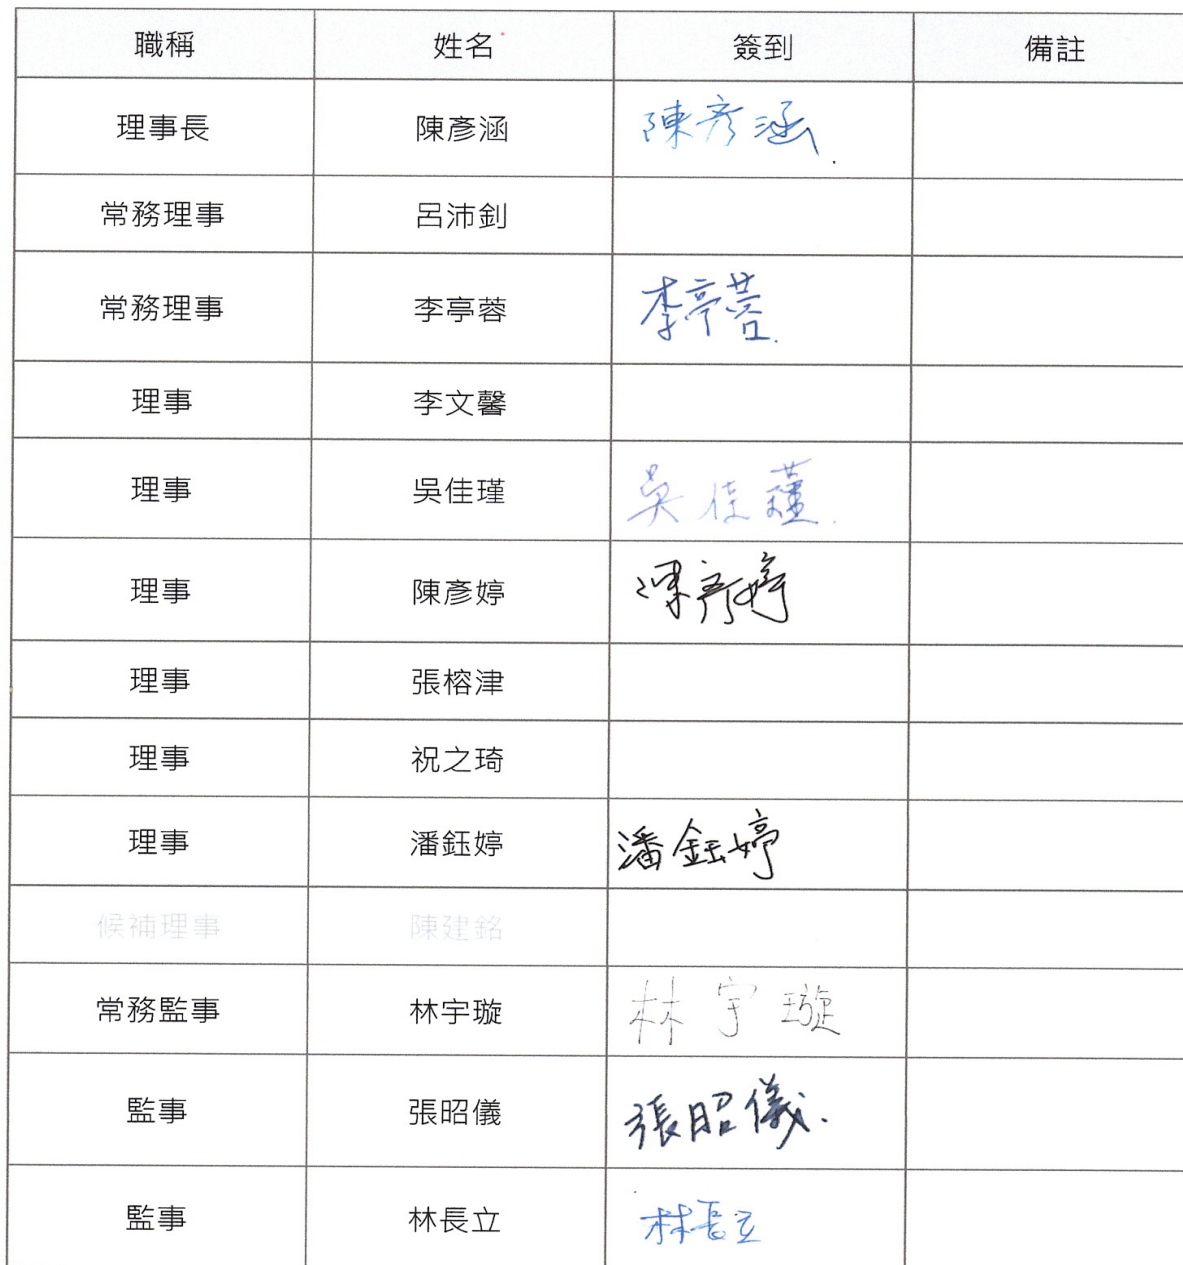 職稱 姓名 簽到 備註
理事長 陳彥涵 陳彥涵
常務理事 呂沛釗
常務理事 李亭蓉 李亭蓉
理事 李文馨
理事 吳佳瑾 吳佳瑾
理事 陳彥婷 陳彥婷
理事 張榕津
理事 祝之琦
理事 潘鈺婷 潘鈺婷
候補理事 陳建銘
常務監事 林宇璇 林宇璇
監事 張昭儀 張昭儀
監事 林長立 林長立